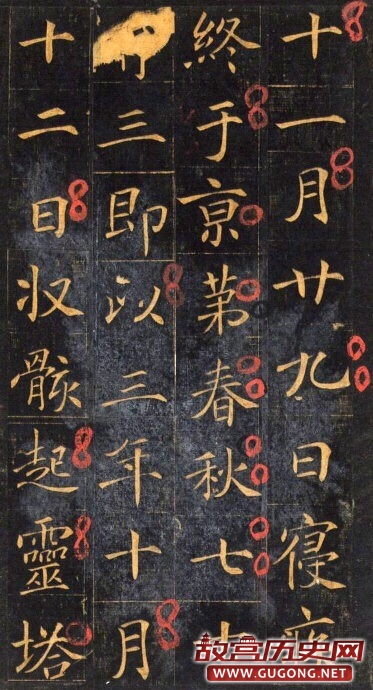 十一月廿九日寢疾
終于亰苐春秋七十
三即以三年十月
十二日収骸起靈塔
故宫历史网
WWW.GUGONG.NET